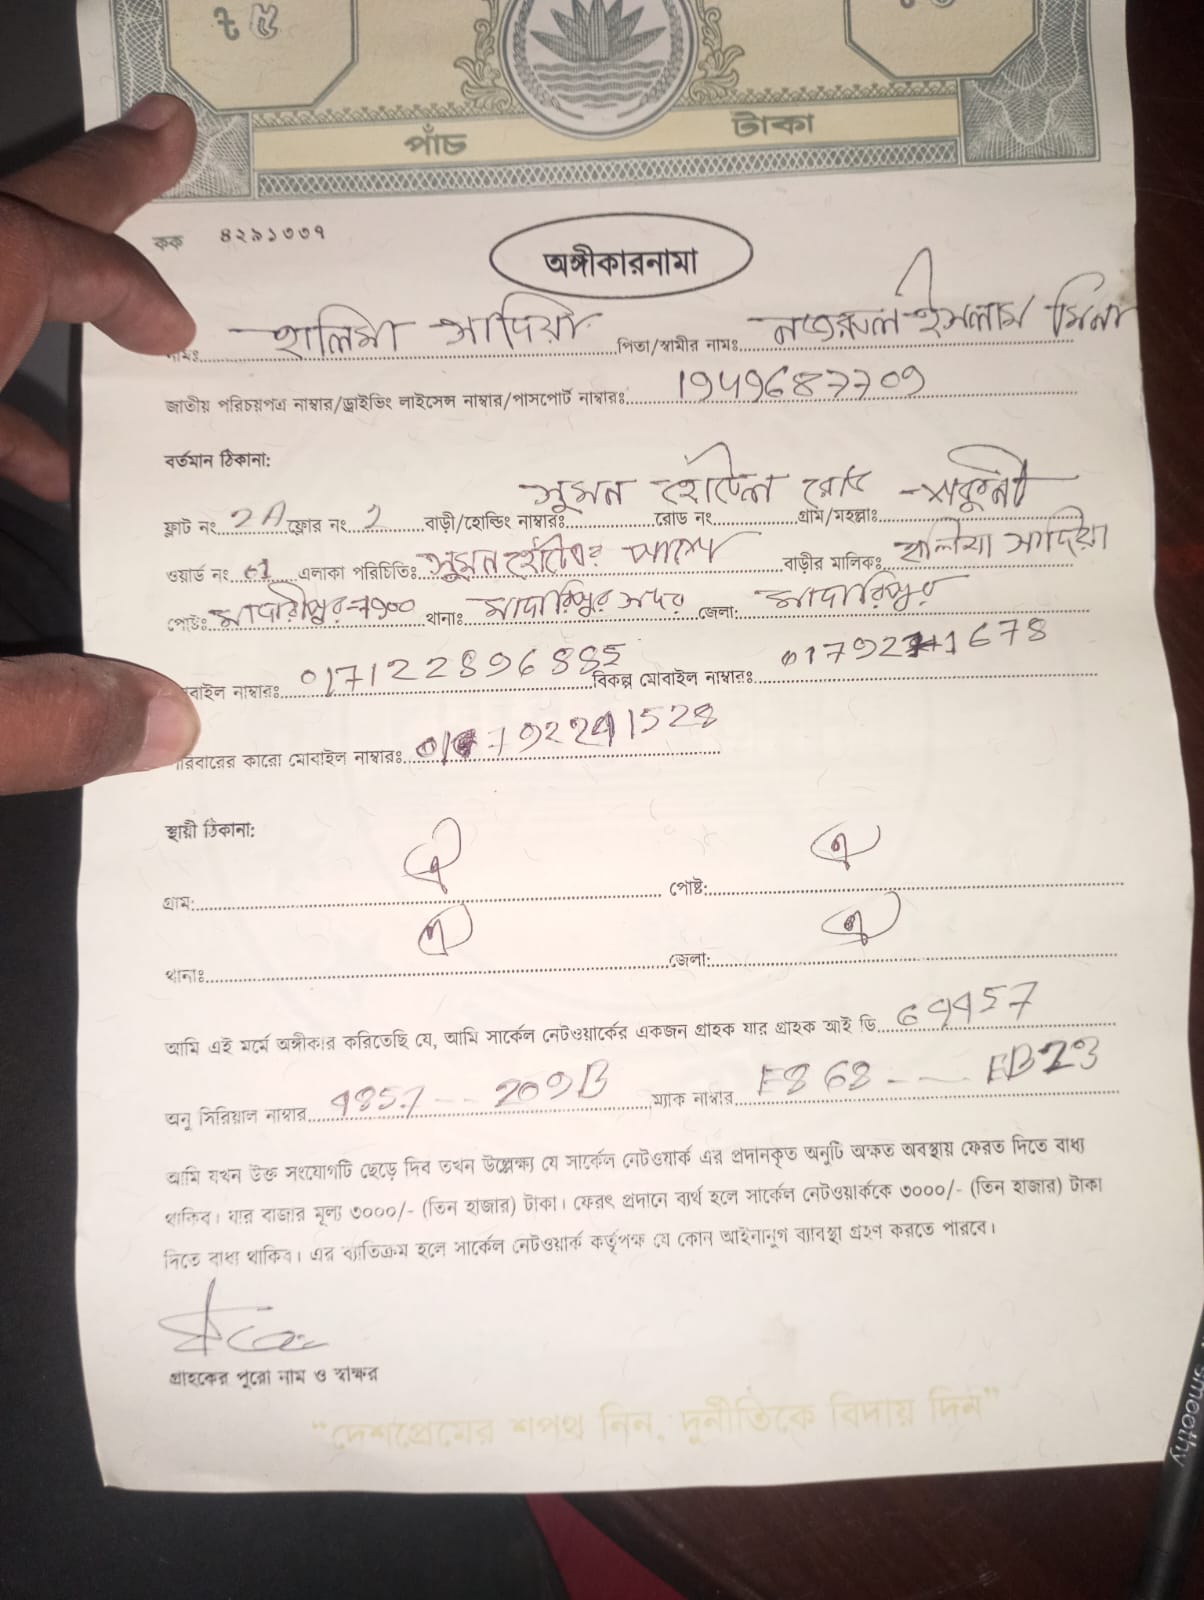 ২৫
পাঁচ টাকা
কক ৪২৯১৩৩৭
অঙ্গীকারনামা
নামঃ হালিমা সাদিয়া পিতা/স্বামীর নামঃ ইসলাম মিনা
জাতীয় পরিচয়পত্র নাম্বার/ড্রাইভিং লাইসেন্স নাম্বার/পাসপোর্ট নাম্বারঃ
বর্তমান ঠিকানা:
ফ্লাট নং 2A ফ্লোর নং 2 বাড়ী/হোল্ডিং নাম্বারঃ সুমন হোটেল রোড নং রোড গ্রাম/মহল্লাঃ শকুনী
ওয়ার্ড নং 01 এলাকা পরিচিতিঃ সুমন হোটেলের পাশে বাড়ীর মালিকঃ হালিমা সাদিয়া
পোষ্টঃ মাদারীপুর-7900 থানাঃ মাদারিপুর সদর জেলা: মাদারিপুর
মোবাইল নাম্বারঃ বিকল্প মোবাইল নাম্বারঃ
পরিবারের কারো মোবাইল নাম্বারঃ
স্থায়ী ঠিকানা:
গ্রাম: ঐ পোষ্ট: ঐ
থানাঃ ঐ জেলা: ঐ
আমি এই মর্মে অঙ্গীকার করিতেছি যে, আমি সার্কেল নেটওয়ার্কের একজন গ্রাহক যার গ্রাহক আই ডি 69457
অনু সিরিয়াল নাম্বার 4857 -- 209B ম্যাক নাম্বার F868 --- EB23
আমি যখন উক্ত সংযোগটি ছেড়ে দিব তখন উল্লেক্ষ্য যে সার্কেল নেটওয়ার্ক এর প্রদানকৃত অনুটি অক্ষত অবস্থায় ফেরত দিতে বাধ্য
থাকিব। যার বাজার মূল্য ৩০০০/- (তিন হাজার) টাকা। ফেরৎ প্রদানে ব্যর্থ হলে সার্কেল নেটওয়ার্ককে ৩০০০/- (তিন হাজার) টাকা
দিতে বাধ্য থাকিব। এর ব্যতিক্রম হলে সার্কেল নেটওয়ার্ক কর্তৃপক্ষ যে কোন আইনানুগ ব্যাবস্থা গ্রহণ করতে পারবে।
গ্রাহকের পুরো নাম ও স্বাক্ষর
"দেশপ্রেমের শপথ নিন, দুর্নীতিকে বিদায় দিন"
smoothy